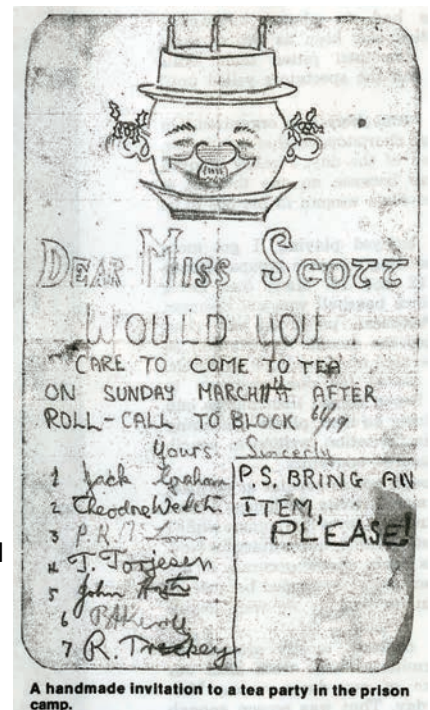 DEAR MISS SCOTT
WOULD YOU
CARE TO COME TO TEA
ON SUNDAY MARCH 11th AFTER
ROLL-CALL TO BLOCK 61/19
Yours Sincerly
1 Jack Graham
2 Theodore Welch
3 P.R.
4 T. Torjesen
5 John
6
7 R. Treckey
P.S. BRING AN
ITEM,
PLEASE!
A handmade invitation to a tea party in the prison
camp.